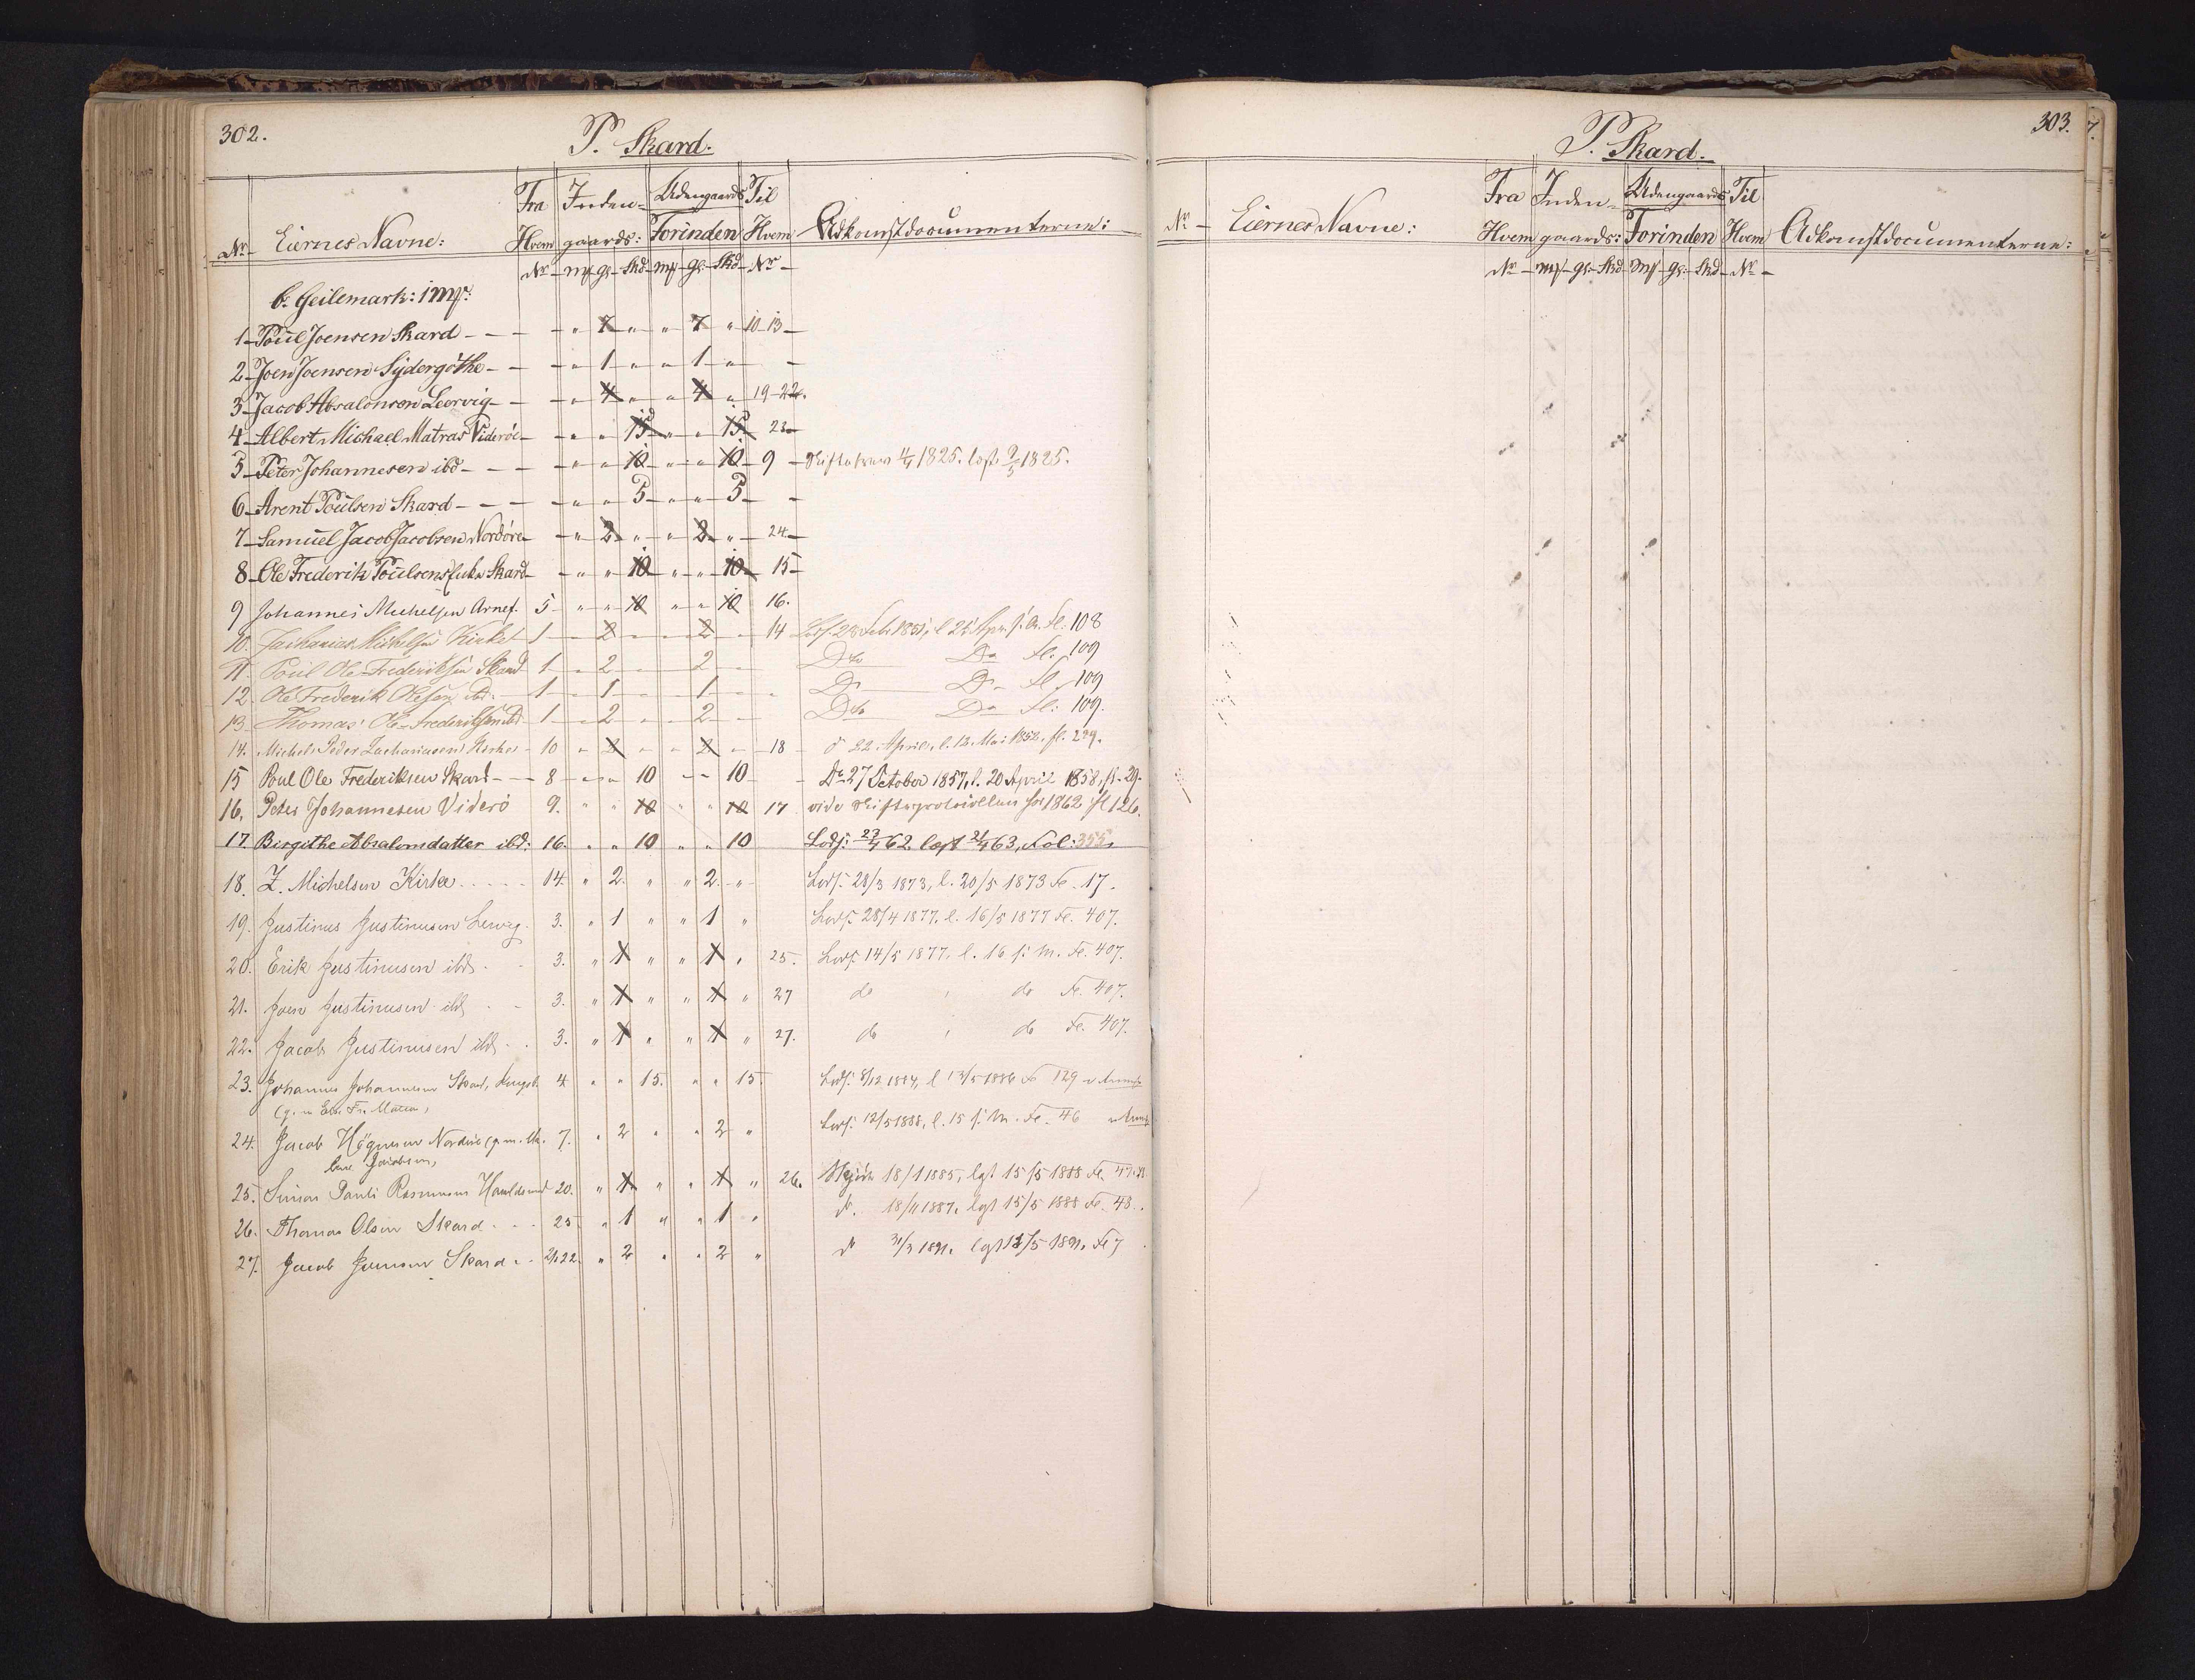 302.
P. Skard.
Nr. Eiernes Navne: Fra Hvem Inden-gaards: Udengaards Forinden Til Hvem Adkomstdocumenterne:
Nr - Mf - gl - Skd - Mf - gl - Skd - Nr -
b. Heilemark: 1 Mf:
1 - Poul Joensen Skard - - - " 7 " " 7 " 10-13 -
2 - Joen Joensen Sydergöthe - - " 1 " " 1 " -
3 - Jacob Absalonsen Leervig - - " 4 " " 4 " 19-22.
4 - Albert Michael Matras Videröe - " " 15 " " 15 23 -
5 - Peter Johannesen ibd - - - " " 10 " " 10 9 - 1825. læst 1825.
6 - Arent Poulsen Skard - - - " " 5 " " 5 -
7 - Samuel Jacob Jacobsen Nordöre - " 2 " " 2 " 24 -
8 - Ole Frederik Poulsens Enke Skard - " " 10 " " 10 15 -
9 Johannes Michelsen Arnef. 5 " " 10 " " 10 16.
10. Zacharias Michelsen Kirke 1 - 2 - - 2 - 14 28 Feb. 1851, l. 25 Apr. s. A. Fl. 108
11. Poul Ole Frederiksen Skard 1 - 2 - 2 - Do Do Fl. 109
12. Ole Frederik Olesen ibd. 1 - 1 - 1 - Do Do Fl. 109
13. Thomas Ole Frederiksen ibd 1 - 2 - 2 - Do Do Fl. 109.
14. Michel Peder Zachariasen Kirke - 10 " 2 - - 2 - 18 - d 22. April, l. 12. Mai 1852. fl. 229.
15 Poul Ole Frederiksen Skard - - 8 - " 10 - - 10 - Do 27 October 1857, l. 20 April 1858, fl. 29.
16. Peter Johannesen Viderö 9. " " 10 " " 10 17 vide Skifteprotocollen for 1862 fl 126.
17. Birgithe Absalomdatter ibd: 16. " " 10 " " 10 Lods: 23/4 62 læst 21/4 63, Fol: 355.
18. Z. Michelsen Kirke . . . . . 14. " 2. " " 2. " Lods: 28/3 1873, l. 20/5 1873 Fl. 17.
19. Justinus Justinusen Lervig. 3. " 1 " " 1 " Lods. 28/4 1877. l. 16/5 1877 Fl. 407.
20. Erik Justinusen ibd. . 3. " 1 " " 1 " 25. Lods. 14/5 1877. l. 16 s. M. Fl. 407.
21. Joen Justinusen ibd . - 3. " 1 " " 1 " 27 do do Fl. 407.
22. Jacob Justinusen ibd . . 3. " 1 " " 1 " 27. do do Fl. 407.
23. Johannes Johannesen Skard, 4 " " 15. " " 15. Lods: 8/12 1884, l 13/5 1886 Fl 129
(g. m
24. Jacob Högnesen Nordöre (g. m. 7. " 2 " " 2 " Lods: 12/5 1888, l. 15 s. M. Fl. 46
Jacobsen)
25. Simon Pauli Rasmussen Haraldsund 20. " 1 " " 1 " 26. Skjöde 18/1 1885, lgst 15/5 1888 Fl. 47.
26. Thomas Olsen Skard . . . 25. " 1 " " 1 " do. 18/11 1887. lgst 15/5 1888 Fl. 48.
27. Jacob Joensen Skard . . 21.22. " 2 " " 2 " do 31/3 1891. lgst 12/5 1891. Fl 7
303.
P. Skard.
Nr - Eiernes Navne: Fra Hvem Inden-gaards: Udengaards Forinden Til Hvem Adkomstdocumenterne:
Nr - Mf - gl - Skd - Mf - gl - Skd - Nr -